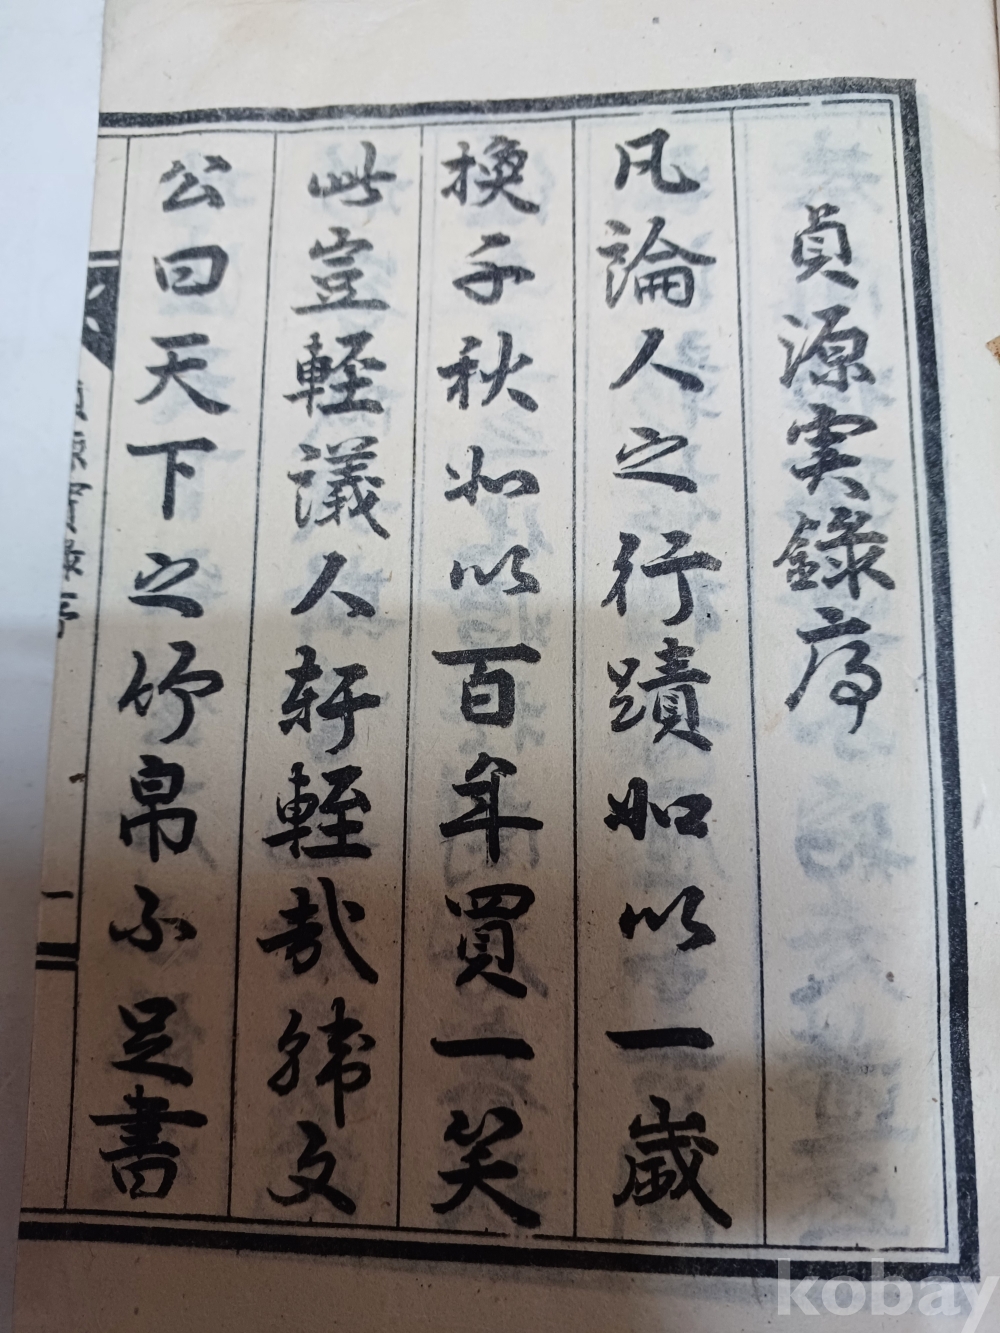 貞源実錄序
凡論人之行蹟如以一歲
換千秋如以百年買一笑
此豈輊議人軒輊哉韓文
公曰天下之竹帛不足書
實錄序
一
kobay